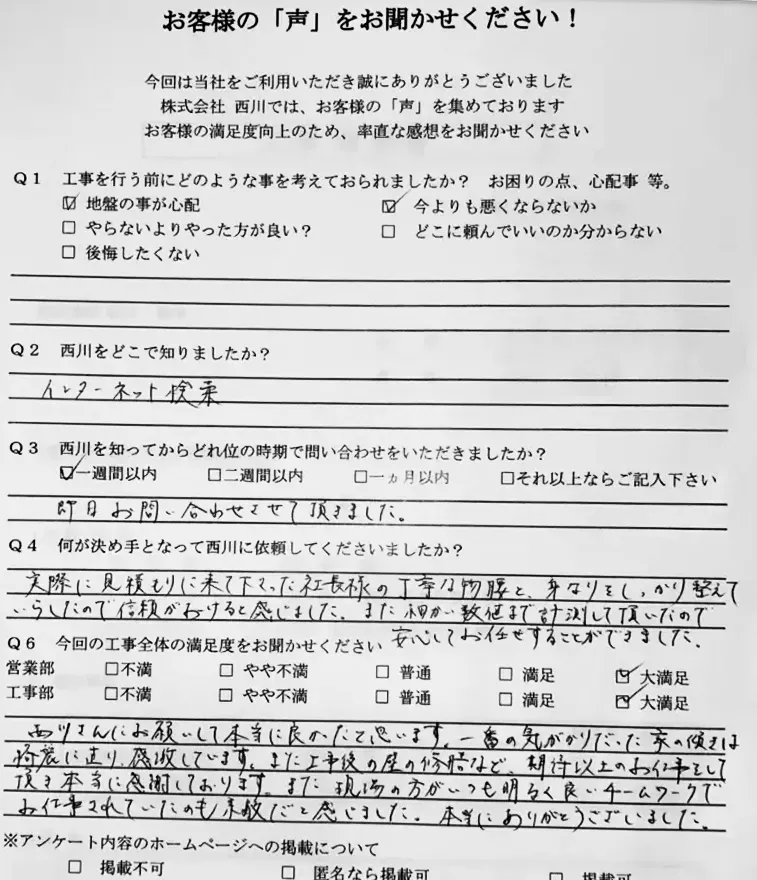 お客様の「声」をお聞かせください！
今回は当社をご利用いただき誠にありがとうございました
株式会社 西川では、お客様の「声」を集めております
お客様の満足度向上のため、率直な感想をお聞かせください
Q1 工事を行う前にどのような事を考えておられましたか？ お困りの点、心配事 等。
☑ 地盤の事が心配 ☑ 今よりも悪くならないか
□ やらないよりやった方が良い？ □ どこに頼んでいいのか分からない
□ 後悔したくない
Q2 西川をどこで知りましたか？
インターネット検索
Q3 西川を知ってからどれ位の時期で問い合わせをいただきましたか？
☑一週間以内 □二週間以内 □一ヵ月以内 □それ以上ならご記入下さい
即日お問い合わせさせて頂きました。
Q4 何が決め手となって西川に依頼してくださいましたか？
実際に見積もりに来て下さった社長様の丁寧な物腰と、身なりをしっかり整えて
いらしたので信頼がおけると感じました。また細かい数値まで計測して頂いたので
安心してお任せすることができました。
Q6 今回の工事全体の満足度をお聞かせください
営業部 □不満 □ やや不満 □ 普通 □ 満足 ☑ 大満足
工事部 □不満 □ やや不満 □ 普通 □ 満足 ☑ 大満足
西川さんにお願いして本当に良かったと思います。一番の気がかりだった家の傾きは
綺麗に直り、感激しています。また工事後の壁の修繕など、期待以上のお仕事をして
頂き本当に感謝しております。また現場の方がいつも明るく良いチームワークで
お仕事されていたのも素敵だと感じました。本当にありがとうございました。
※アンケート内容のホームページへの掲載について
□ 掲載不可 □ 匿名なら掲載可 □ 掲載可